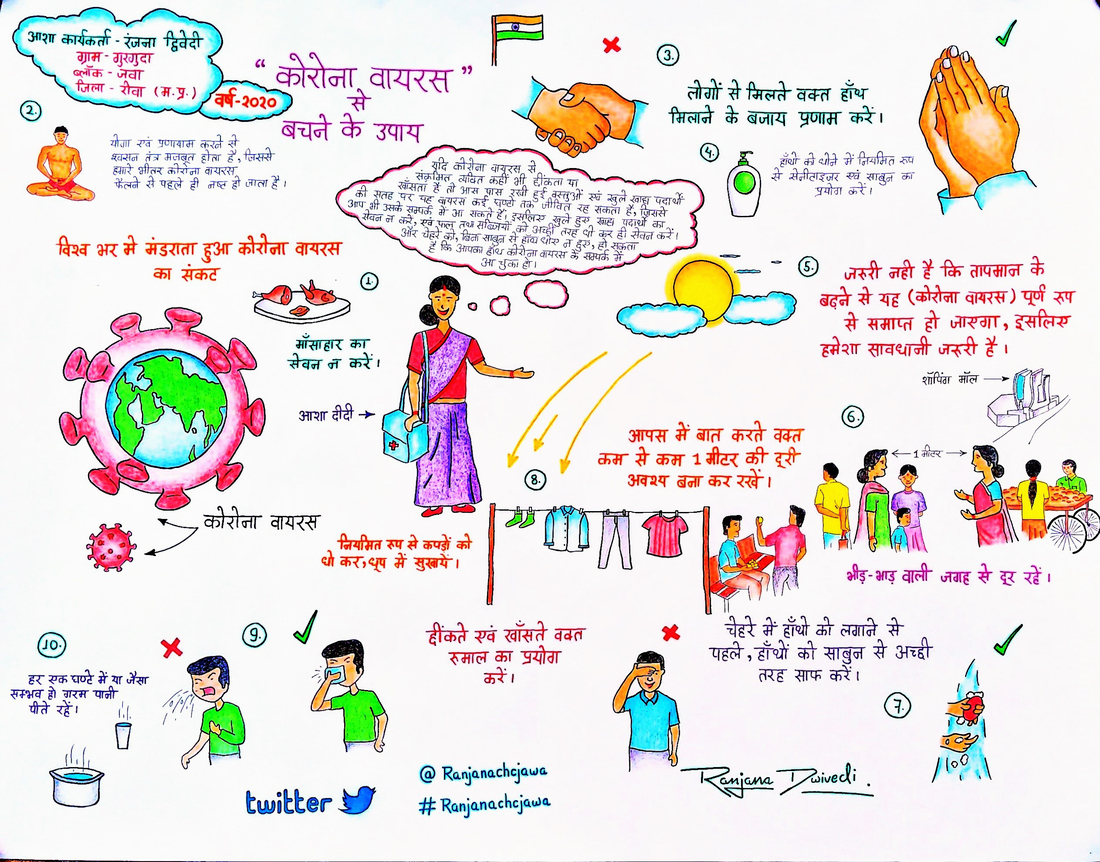 आशा कार्यकर्ता - रंजना द्विवेदी
ग्राम - गुरगुदा
ब्लॉक - जवा
जिला - रीवा (म.प्र.)
वर्ष-2020
“ कोरोना वायरस ”
से
बचने के उपाय
2.
योगा एवं प्रणायाम करने से
श्वसन तंत्र मजबूत होता है, जिससे
हमारे भीतर कोरोना वायरस
फैलने से पहले ही नष्ट हो जाता है।
3.
लोगों से मिलते वक्त हाँथ
मिलाने के बजाय प्रणाम करें।
4.
हाँथों को धोने में नियमित रूप
से सेनीटाइजर एवं साबुन का
प्रयोग करें।
यदि कोरोना वायरस से
संक्रमित व्यक्ति कहीं भी छींकता या
खाँसता है तो आस पास रखी हुई वस्तुओं एवं खुले खाद्य पदार्थो
की सतह पर यह वायरस कई घण्टो तक जीवित रह सकता है, जिससे
आप भी उसके सम्पर्क में आ सकते हैं। इसलिए खुले हुए खाद्य पदार्थों का
सेवन न करें, एवं फल तथा सब्जियों को अच्छी तरह धो कर ही सेवन करें।
और चेहरे को, बिना साबुन से हाँथ धोए न छुए, हो सकता
है कि आपका हाँथ कोरोना वायरस के सम्पर्क में
आ चुका हो।
विश्व भर मे मंडराता हुआ कोरोना वायरस
का संकट
1.
माँसाहार का
सेवन न करें।
आशा दीदी
5.
जरूरी नही है कि तापमान के
बढ़ने से यह (कोरोना वायरस) पूर्ण रूप
से समाप्त हो जाएगा, इसलिए
हमेशा सावधानी जरूरी है।
शॉपिंग मॉल
6.
1 मीटर
आपस में बात करते वक्त
कम से कम 1 मीटर की दूरी
अवश्य बना कर रखें।
भीड़-भाड़ वाली जगह से दूर रहें।
कोरोना वायरस
8.
नियमित रूप से कपड़ों को
धो कर, धूप में सुखायें।
10.
हर एक घण्टे में या जैसा
सम्भव हो गरम पानी
पीते रहें।
9.
छींकते एवं खाँसते वक्त
रुमाल का प्रयोग
करें।
चेहरे में हाँथो को लगाने से
पहले, हाँथों को साबुन से अच्छी
तरह साफ करें।
7.
twitter
@ Ranjanachcjawa
# Ranjanachcjawa
Ranjana Dwivedi.